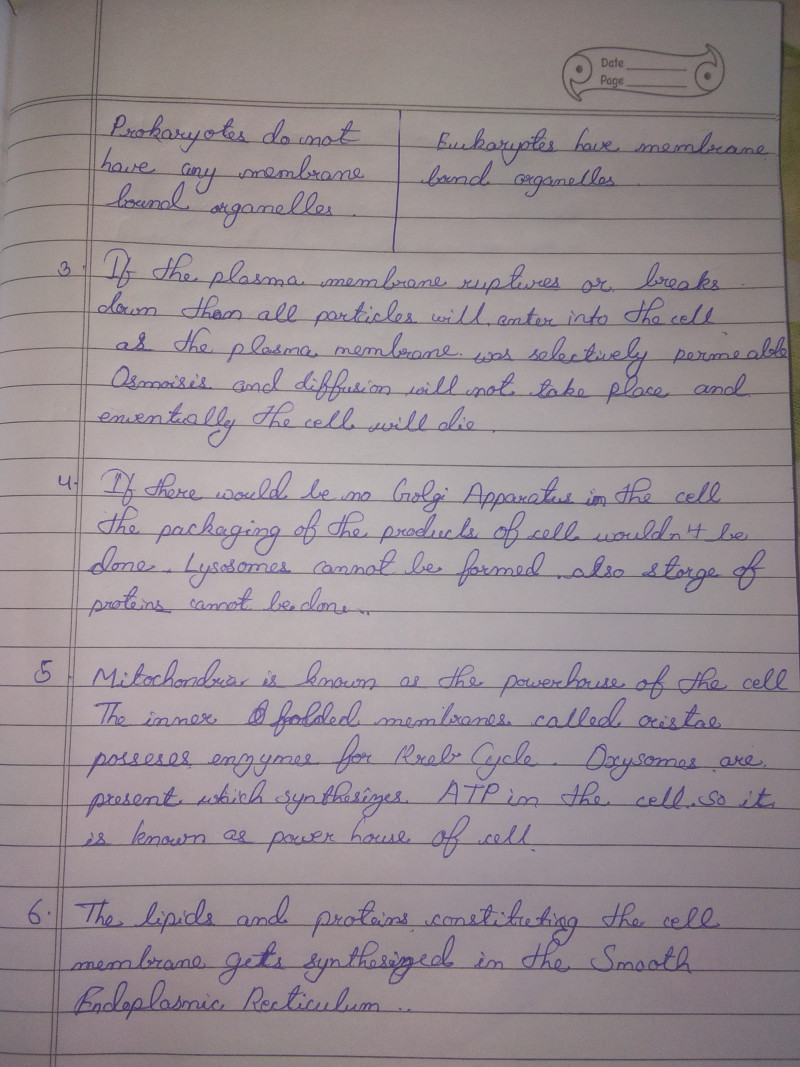 Date
Page
Prokaryotes do not
have any membrane
bound organelles.
Eukaryotes have membrane
bound organelles.
3. If the plasma membrane ruptures or breaks
down then all particles will enter into the cell
as the plasma membrane was selectively permeable
Osmoisis and diffusion will not take place and
enventually the cell will die.
4. If there would be no Golgi Apparatus in the cell
the packaging of the products of cell wouldn't be
done. Lysosomes cannot be formed. also storge of
proteins cannot be done..
5. Mitochondria is known as the powerhouse of the cell
The inner folded membranes called cristae
posseses enzymes for Kreb Cycle. Oxysomes are
present which synthesizes ATP in the cell. so it
is known as power house of cell.
6. The lipids and proteins constituting the cell
membrane gets synthesized in the Smooth
Endoplasmic Recticulum..